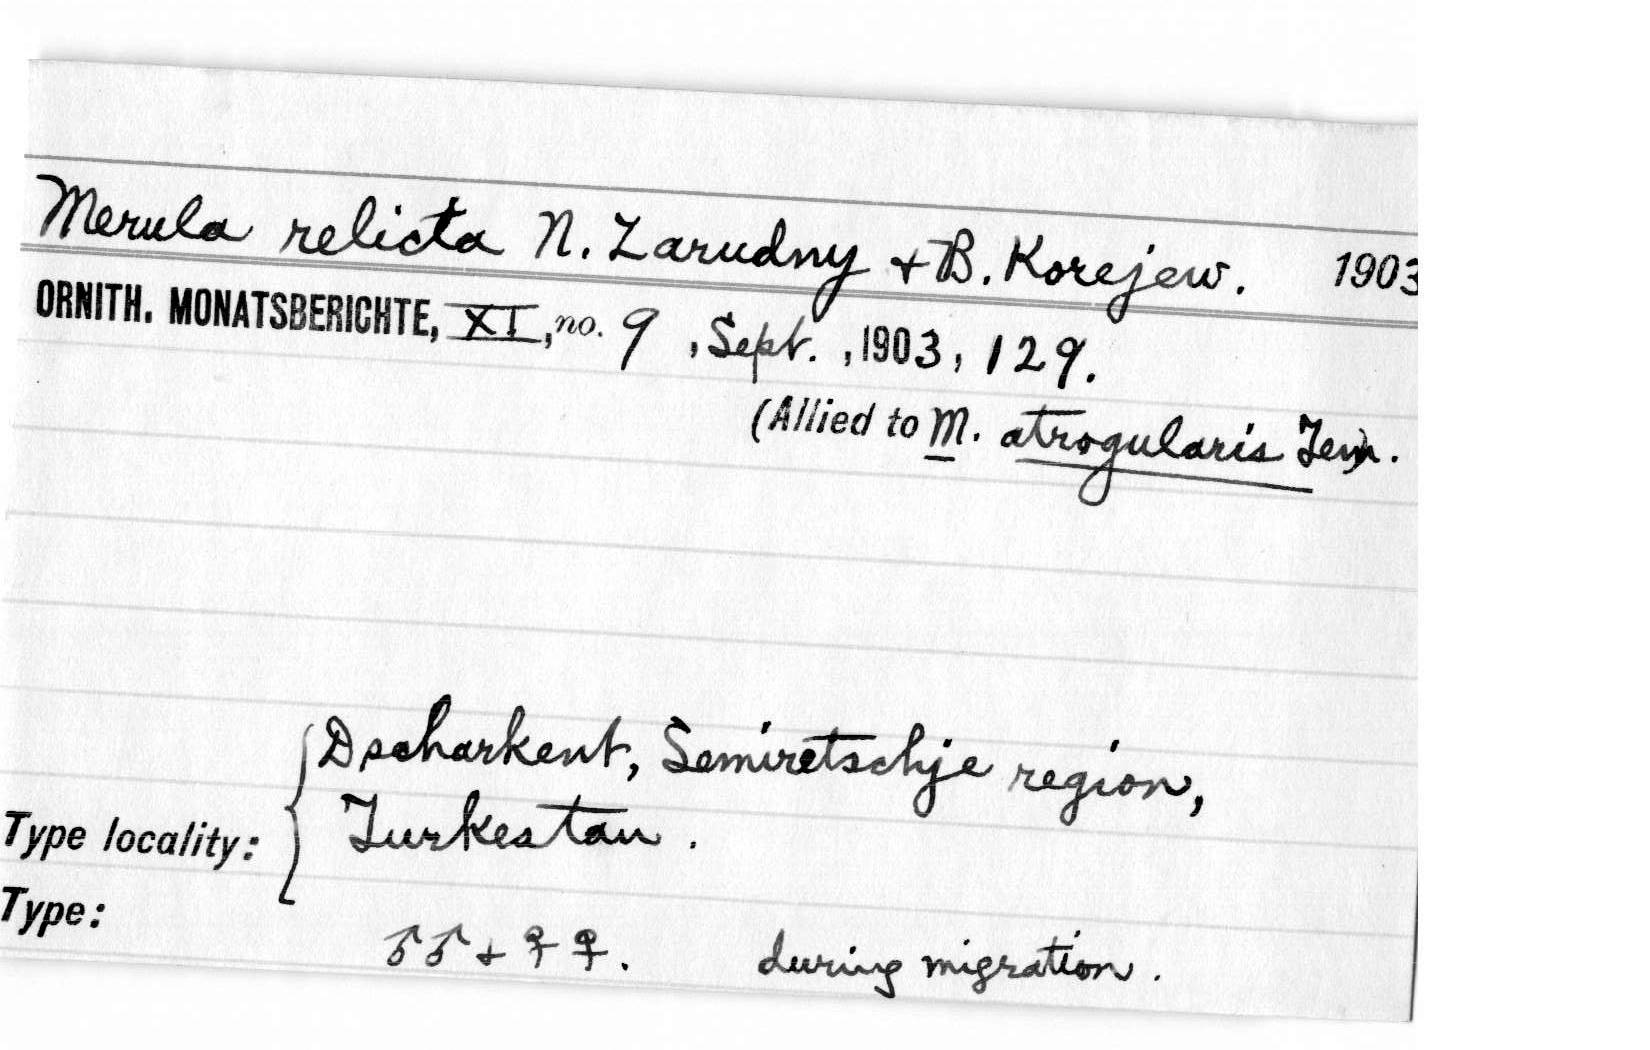 Merula relicta N. Zarudny + B. Korejew. 1903
ORNITH. MONATSBERICHTE, XI, no. 9, Sept., 1903, 129.
(Allied to M. atrogularis Tem).
Dscharkent, Semiretschje region,
Type locality: { Turkestan.
Type:
♂♂ + ♀♀. during migration.